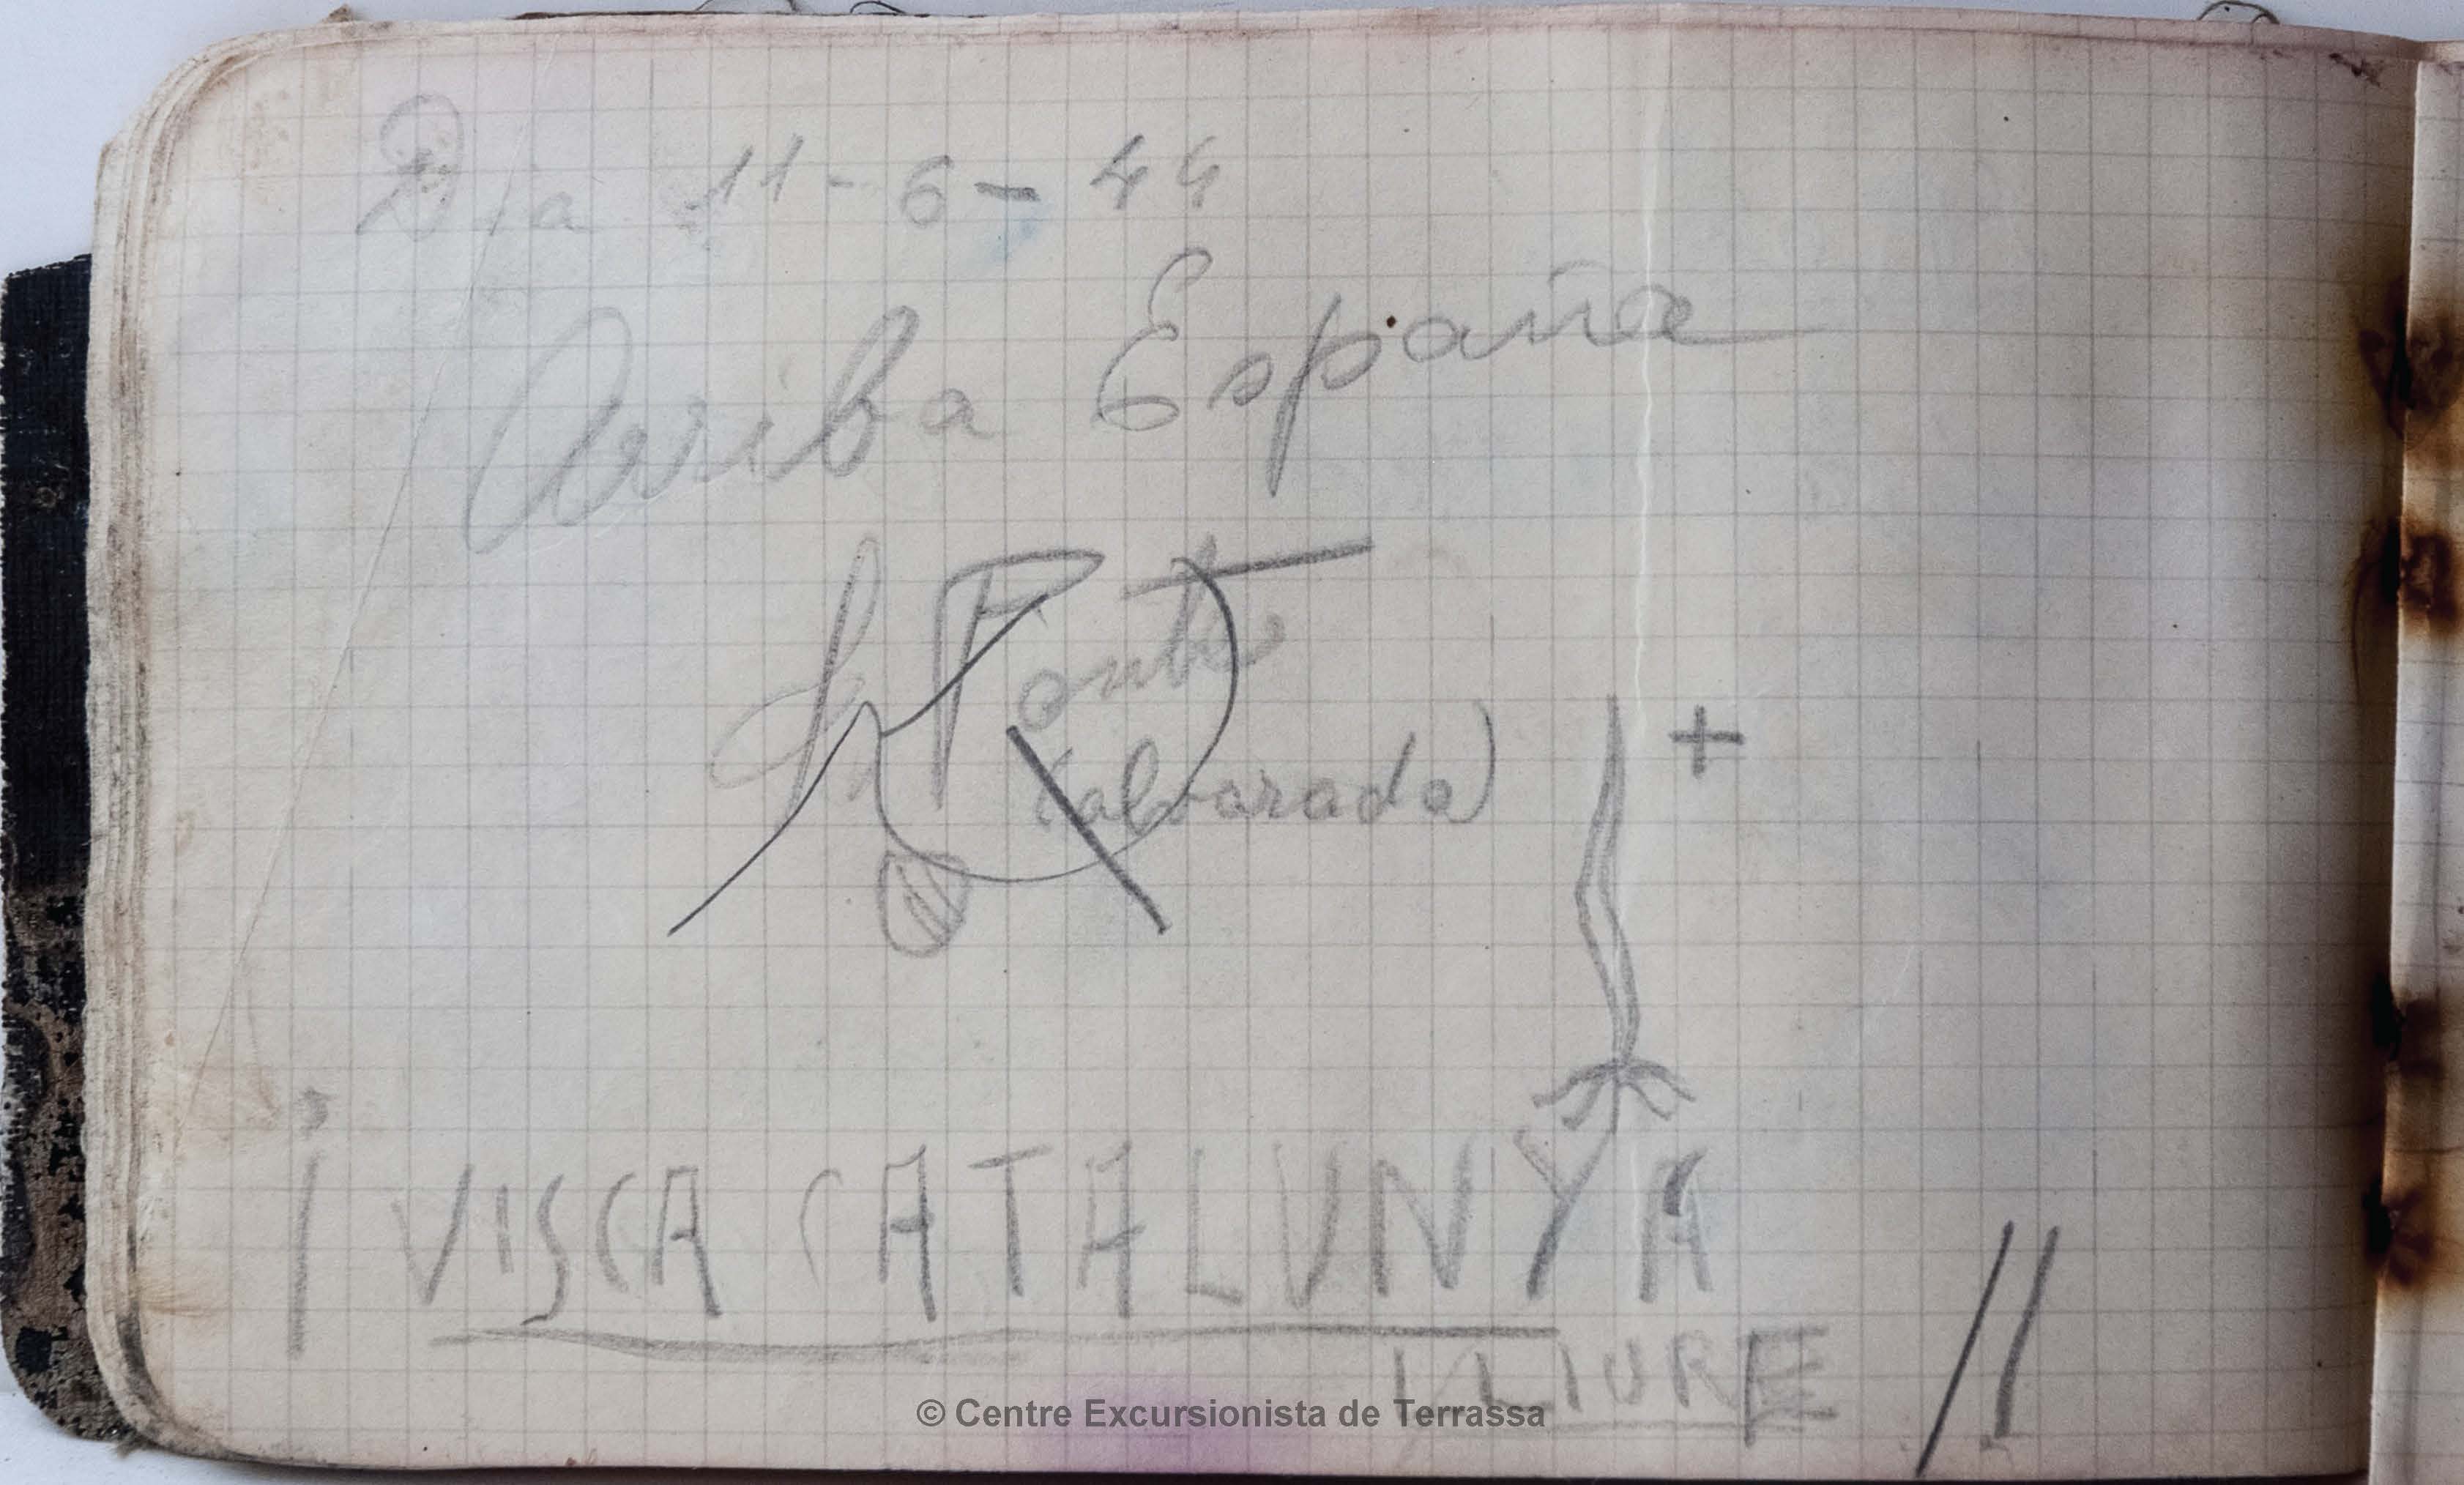 Dia 11-6-44
Ariba España
¡VISCA CATALUNYA
LLIURE !!
© Centre Excursionista de Terrassa